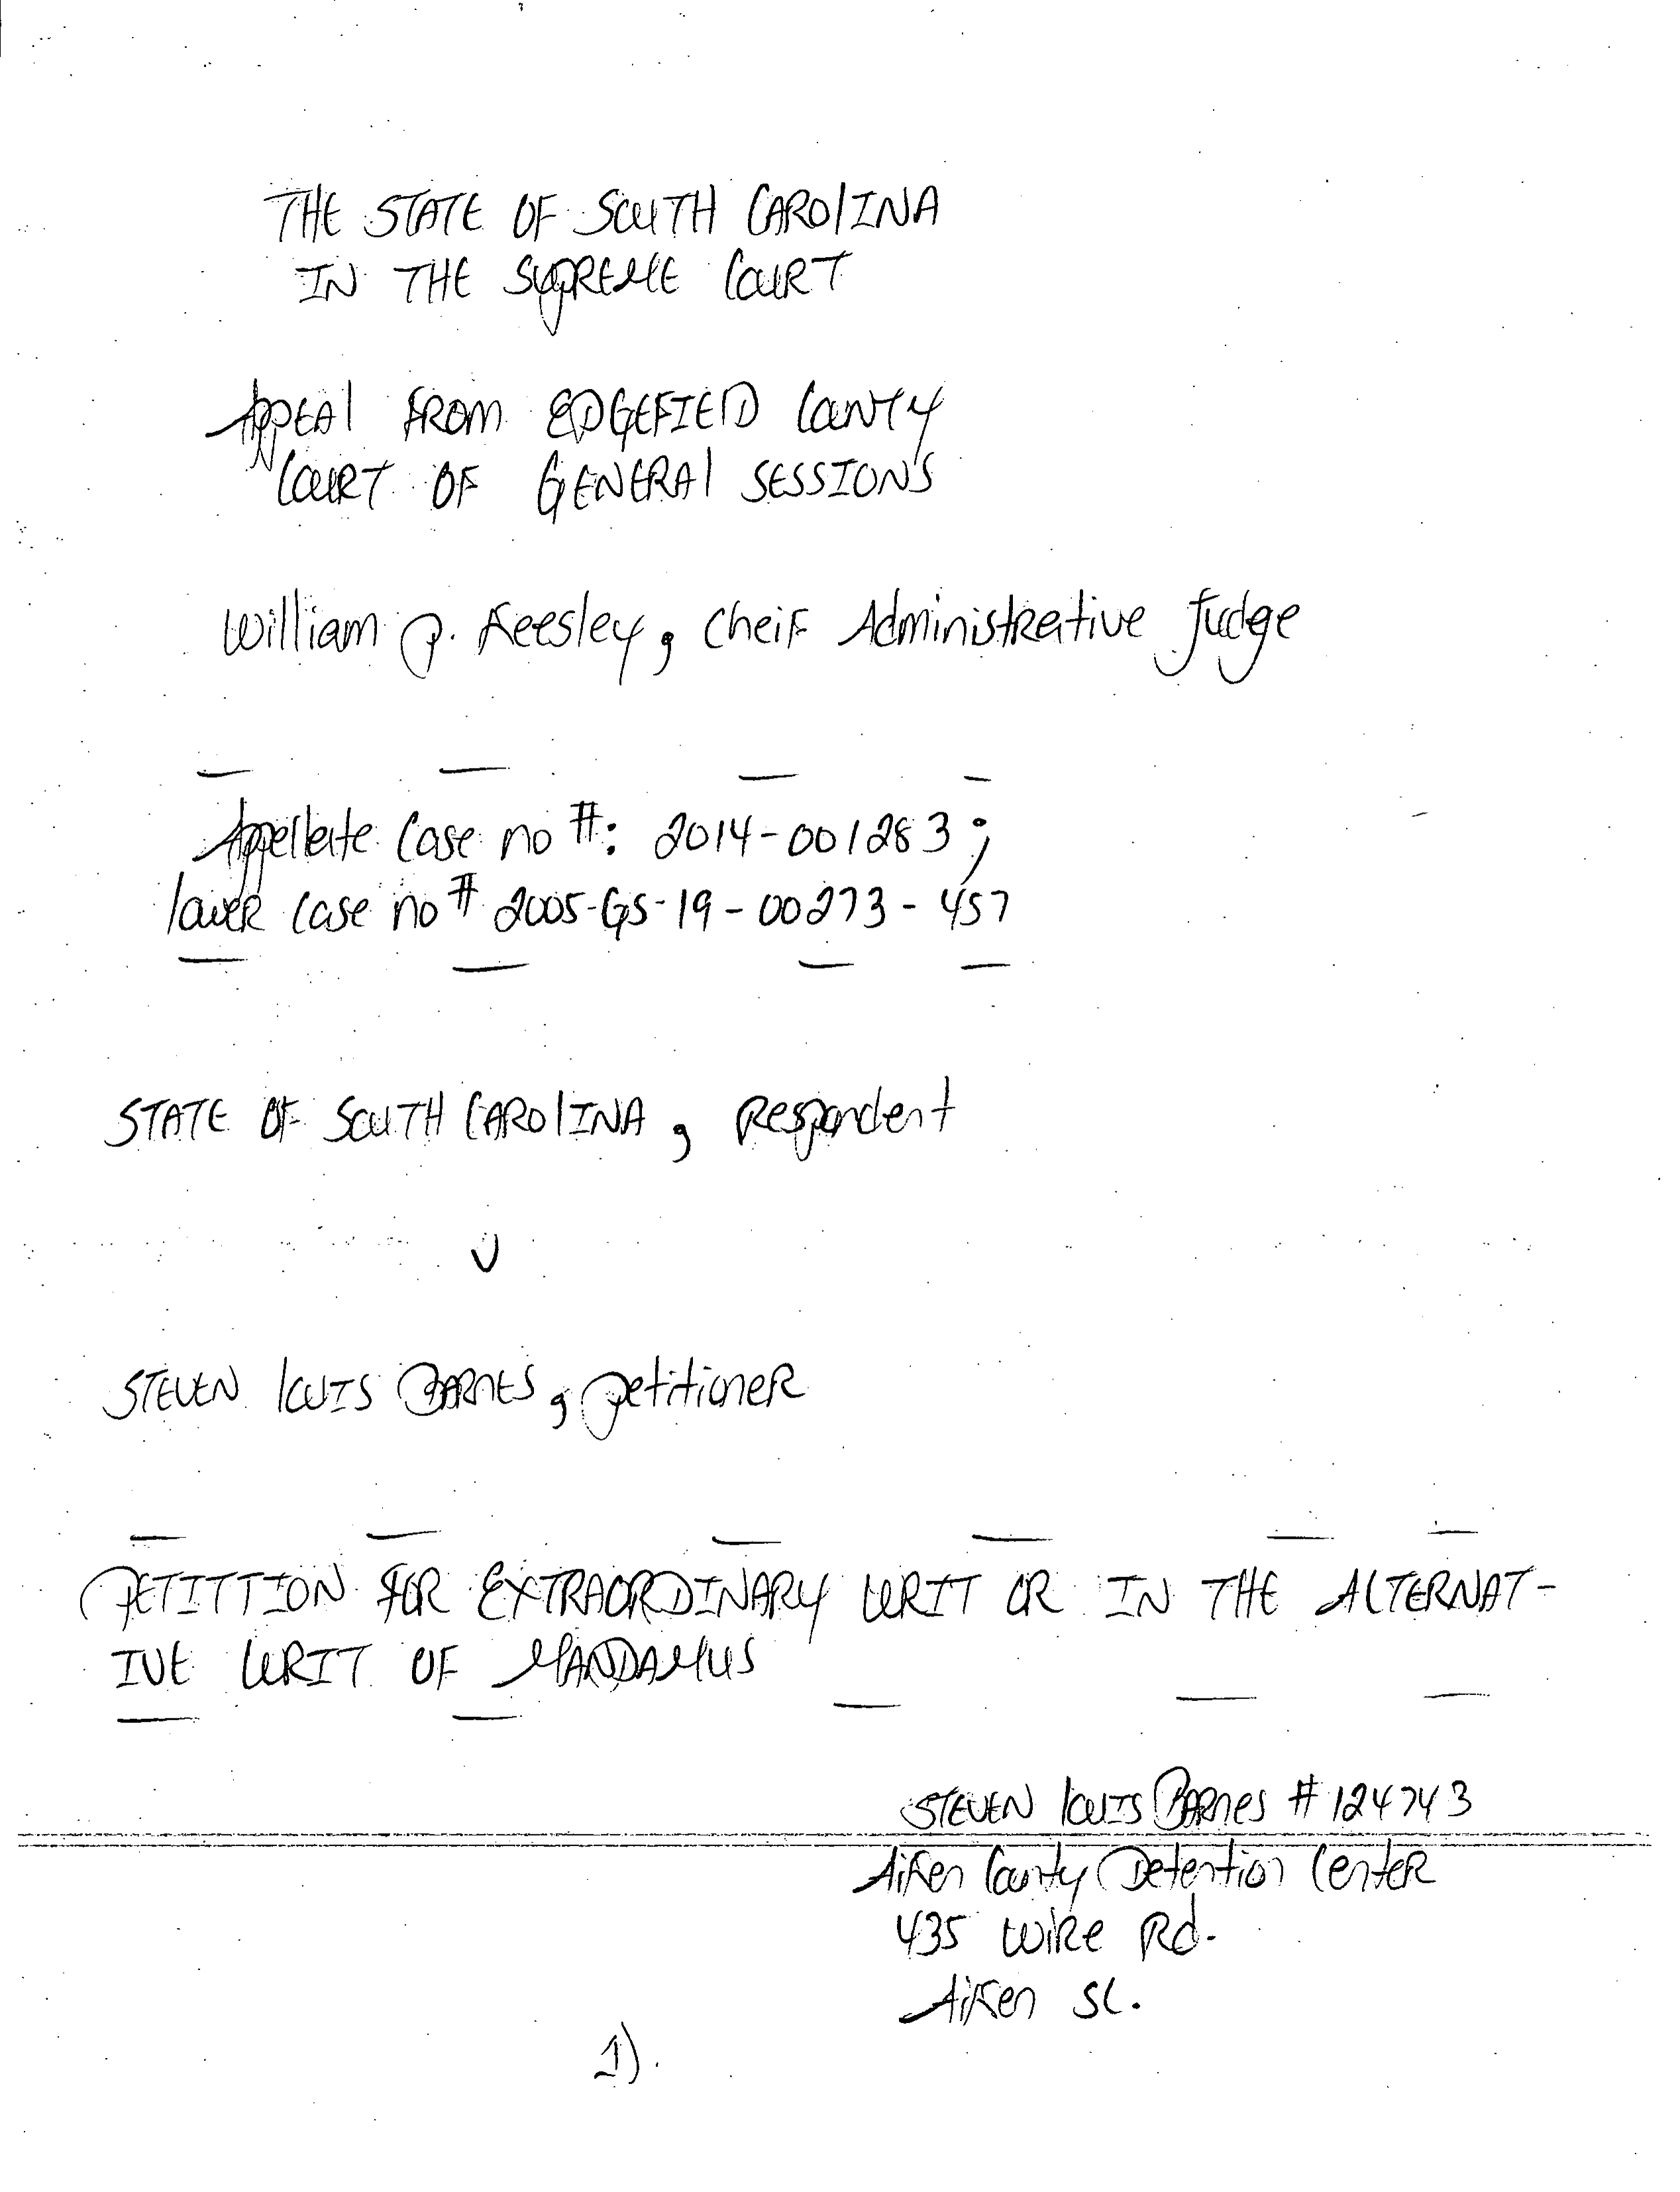 THE STATE OF SOUTH CAROLINA
IN THE SUPREME COURT
APPEAL FROM EDGEFIELD COUNTY
COURT OF GENERAL SESSIONS
William P. Keesley, Cheif Administrative Judge
Appellate Case no #: 2014-001283;
lower case no # 2005-GS-19-00273-457
STATE OF SOUTH CAROLINA, Respondent
V
STEVEN LOUIS BARNES, petitioner
PETITTION FOR EXTRAORDINARY WRIT OR IN THE ALTERNAT-
IVE WRIT OF MANDAMUS
STEVEN LOUIS BARNES # 124743
Aiken County Detention Center
435 Wire Rd.
Aiken SC.
1).